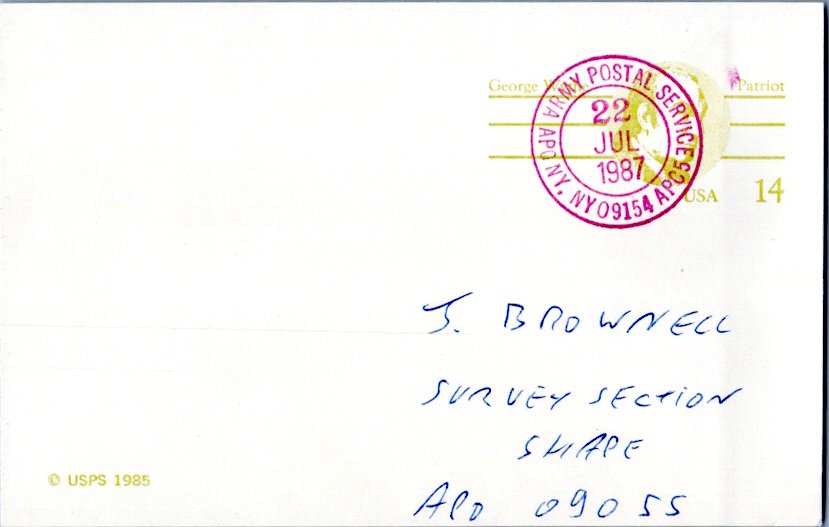 George W Patriot
ARMY POSTAL SERVICE
22
JUL
1987
APO NY, NY 09154 APC5
USA 14
J. BROWNELL
SURVEY SECTION
SHAPE
APO 09055
© USPS 1985